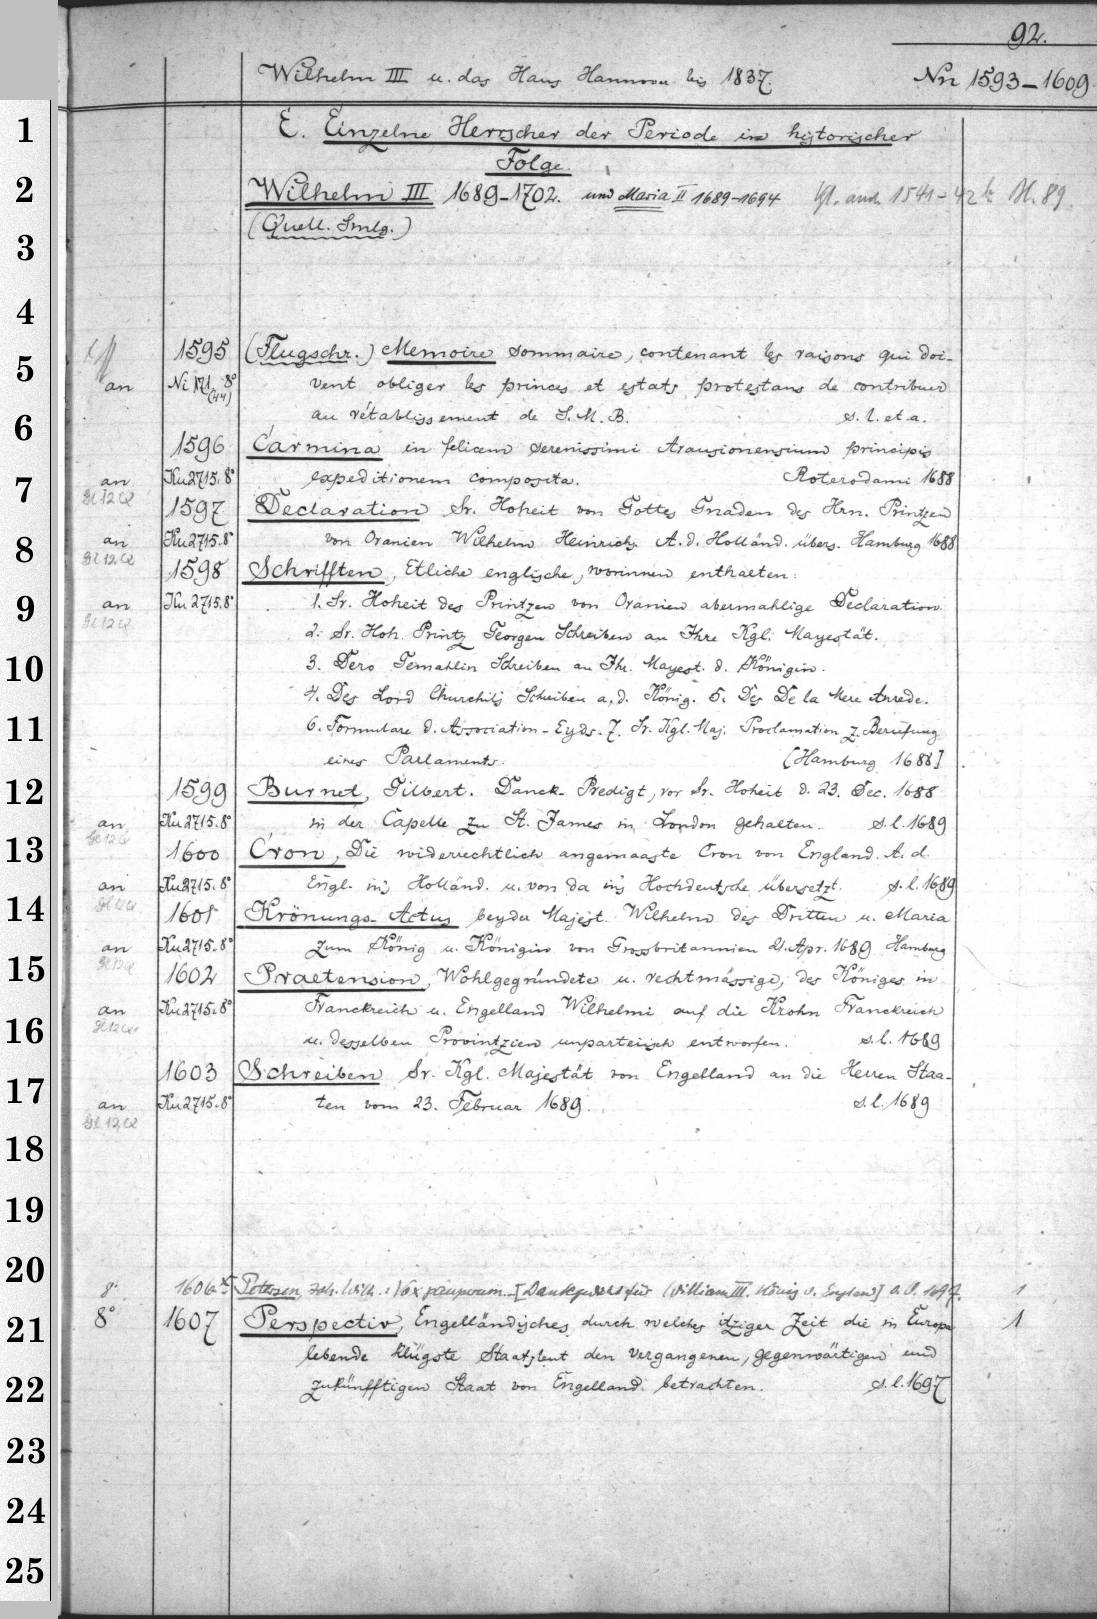 92.
Wilhelm III u. das Haus Hannover bis 1837. Nr 1593-1609
1 E. Einzelne Herrscher der Periode in historischer
Folge.
2 Wilhelm III 1689-1702. und Maria II 1689-1694 Vgl. auch 1541-42 b Bl. 89.
3 (Quell. Smlg.)
4
1595 (Flugschr.) Memoire sommaire, contenant les raisons qui doi-
5 an Ni 171 8° (44) vent obliger les princes et estats protestans de contribuer
au rétablissement de S. M. B. s. l. et a.
6 1596 Carmina in felicem serenissimi Arausionensium principis
7 an Ku 2715. 8° expeditionem composita. Roterodami 1688
Gl 12 a 1597 Declaration Sr. Hoheit von Gottes Gnaden des Hrn. Printzen
8 an Ku 2715. 8° von Oranien Wilhelm Heinrichs A. d. Holländ. übers. Hamburg 1688
Gl 12 a 1598 Schrifften, Etliche englische, worinnen enthalten:
9 an Ku 2715. 8° 1. Sr. Hoheit des Printzen von Oranien abermahlige Declaration
Gl 12 a 2. Sr. Hoh. Printz Georgen Schreiben an Ihre Kgl. Mayestät.
10 3. Dero Gemahlin Schreiben an Ihr. Mayest. d. Königin.
4. Des Lord Churchils Schreiben a. d. König. 5. Des De la Mere Anrede.
11 6. Formulare d. Association-Eyds. 7. Sr. Kgl. Maj. Proclamation z. Berufung
eines Parlaments. [Hamburg 1688]
12 1599 Burnet, Gilbert. Danck-Predigt, vor Sr. Hoheit d. 23. Dec. 1688
an Ku 2715. 8° in der Capelle zu St. James in London gehalten. s. l. 1689
13 Gl 12 a 1600 Cron, Die widerrechtlich angemaaste Cron von England. A. d.
an Ku 2715. 8° Engl. ins Holländ. u. von da ins Hochdeutsche übersetzt. s. l. 1689
14 Gl 12 a 1601 Krönungs-Actus beyder Majest. Wilhelm des Dritten u. Maria
an Ku 2715. 8° zum König u. Königin von Grossbritannien 21. Apr. 1689 Hamburg
15 Gl 12 a 1602 Praetension, Wohlgegründete u. rechtmässige, des Königes in
an Ku 2715. 8° Franckreich u. Engelland Wilhelmi auf die Krohn Franckreich
16 Gl 12 a u. desselben Provintzien unparteiisch entworfen. s. l. 1689
17 1603 Schreiben Sr. Kgl. Majestät von Engelland an die Herren Staa-
an Ku 2715. 8° ten vom 23. Februar 1689. s. l. 1689
18 Gl 12 a
19
20 8° 1606 Petersen, Joh. Wilh.: Vox pauperum. [Dankgebet für William III. König v. England] a. O. 1697. 1
21 8° 1607 Perspectiv, Engelländisches, durch welches itziger Zeit die in Europa 1
lebende klügste Staatsleut den vergangenen, gegenwärtigen und
22 zukünfftigen Staat von Engelland betrachten. s. l. 1697
23
24
25